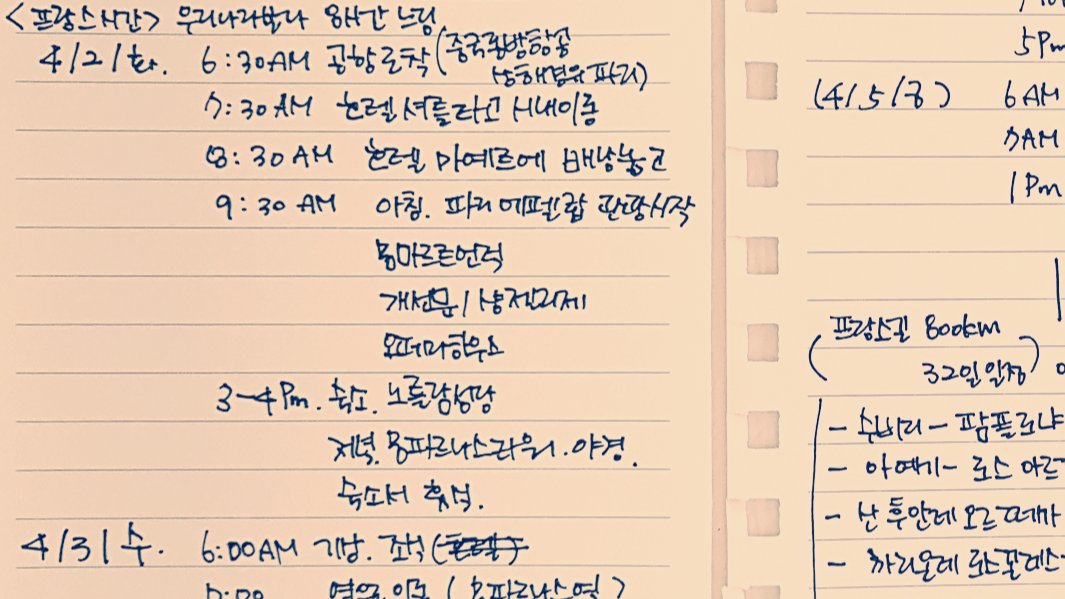 <프랑스시간> 우리나라보다 8시간 느림
4/2/화. 6:30AM 공항도착(중국동방항공
상해경유 파리)
7:30AM 호텔셔틀타고 시내이동
8:30AM 호텔 마예르에 배낭놓고
9:30AM 아침. 파리에펠탑 관광시작
몽마르트언덕
개선문/샹젤리제
오페라하우스
3-4Pm. 숙소. 노틀담성당
저녁. 몽파르나스타워. 야경.
숙소서 휴식.
4/3/수. 6:00AM 기상. 조식
5Pm
(4/5/금) 6AM
7AM
1Pm
프랑스길 800km
32일일정)
- 수비리 - 팜플로냐
- 아예기 - 로스 아르
- 산후안데오르떼가
- 까리온데 로스꼰데스